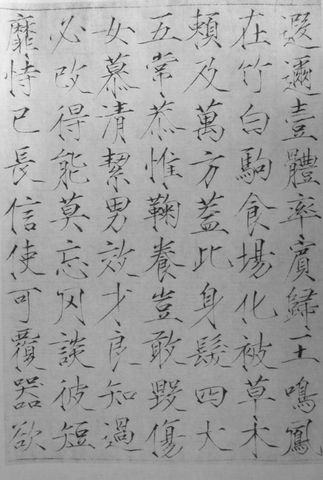 遐邇壹體率賓歸王鳴鳳
在竹白駒食場化被草木
賴及萬方蓋此身髮四大
五常恭惟鞠養豈敢毀傷
女慕清絜男效才良知過
必改得能莫忘罔談彼短
靡恃己長信使可覆器欲